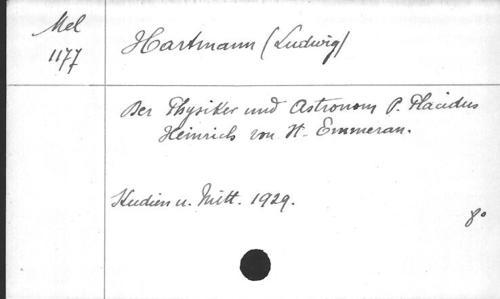 Mel
1177
Hartmann (Ludwig)
Der Physiker und Astronom P. Placidus
Heinrich von St. Emmeran.
Studien u. Mitt. 1929.
8°